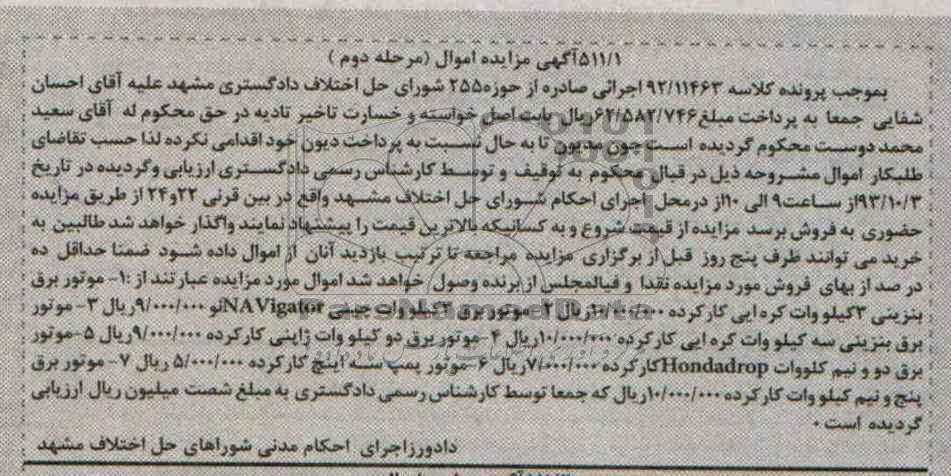 ۵۱۱/۱آگهی مزایده اموال (مرحله دوم )
بموجب پرونده کلاسه ۹۲/۱۱۴۶۳ اجرائی صادره از حوزه۲۵۵ شورای حل اختلاف دادگستری مشهد علیه آقای احسان
شفایی جمعا به پرداخت مبلغ۶۲/۵۸۲/۷۴۶ریال بابت اصل خواسته و خسارت تاخیر تادیه در حق محکوم له آقای سعید
محمد دوست محکوم گردیده است چون مدیون تا به حال نسبت به پرداخت دیون خود اقدامی نکرده لذا حسب تقاضای
طلبکار اموال مشروحه ذیل در قبال محکوم به توقیف و توسط کارشناس رسمی دادگستری ارزیابی وگردیده در تاریخ
۹۳/۱۰/۳از ساعت۹ الی ۱۰از درمحل اجرای احکام شورای حل اختلاف مشهد واقع در بین قرنی ۲۲و۲۴ از طریق مزایده
حضوری به فروش برسد مزایده از قیمت شروع و به کسانیکه بالاترین قیمت را پیشنهاد نمایند واگذار خواهد شد طالبین به
خرید می توانند ظرف پنج روز قبل از برگزاری مزایده مراجعه تا ترتیب بازدید آنان از اموال داده شود ضمنا حداقل ده
در صد از بهای فروش مورد مزایده نقدا و فیالمجلس از برنده وصول خواهد شد اموال مورد مزایده عبارتند از :۱- موتور برق
بنزینی ۳کیلو وات کره ایی کارکرده ۱۰/۰۰۰/۰۰۰ریال ۲-موتور برق ۲کیلو وات چینی NAVigatorنو ۹/۰۰۰/۰۰۰ریال ۳- موتور
برق بنزینی سه کیلو وات کره ایی کارکرده ۱۰/۰۰۰/۰۰۰ریال ۴-موتور برق دو کیلو وات ژاپنی کارکرده ۹/۰۰۰/۰۰۰ریال ۵-موتور
برق دو و نیم کلووات Hondadropکارکرده ۷/۰۰۰/۰۰۰ریال ۶-موتور پمپ سه اینچ کارکرده ۵/۰۰۰/۰۰۰ ریال ۷- موتور برق
پنج و نیم کیلو وات کارکرده ۱۰/۰۰۰/۰۰۰ریال که جمعا توسط کارشناس رسمی دادگستری به مبلغ شصت میلیون ریال ارزیابی
گردیده است ۰
دادورزاجرای احکام مدنی شوراهای حل اختلاف مشهد